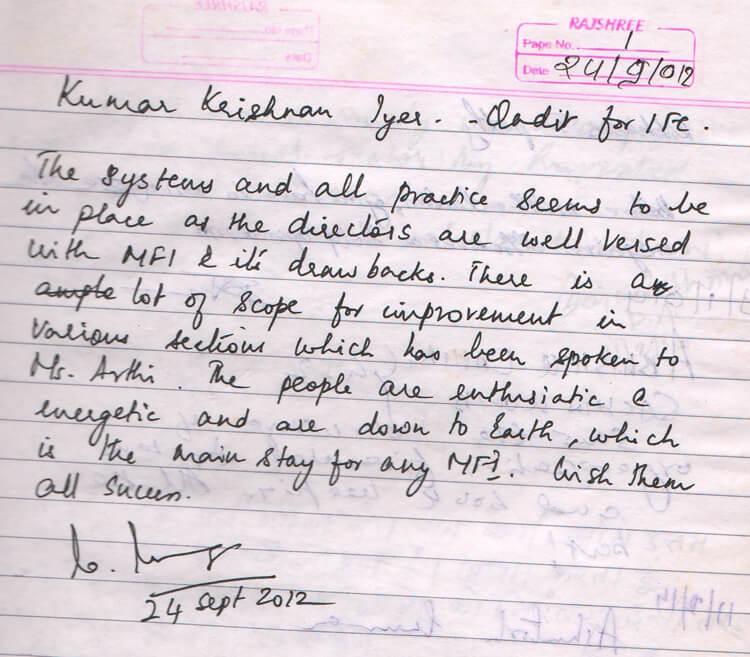 RAJSHREE
Page No. 1
Date 24/9/012
Kumar Krishnan Iyer. - Audit for IFC.
The systems and all practice seems to be
in place as the directors are well versed
with MFI & it's drawbacks. There is a
ample lot of scope for improvement in
various sections which has been spoken to
Ms. Arthi. The people are enthusiatic &
energetic and are down to Earth, which
is the main stay for any MFI. Wish them
all success.
24 Sept 2012